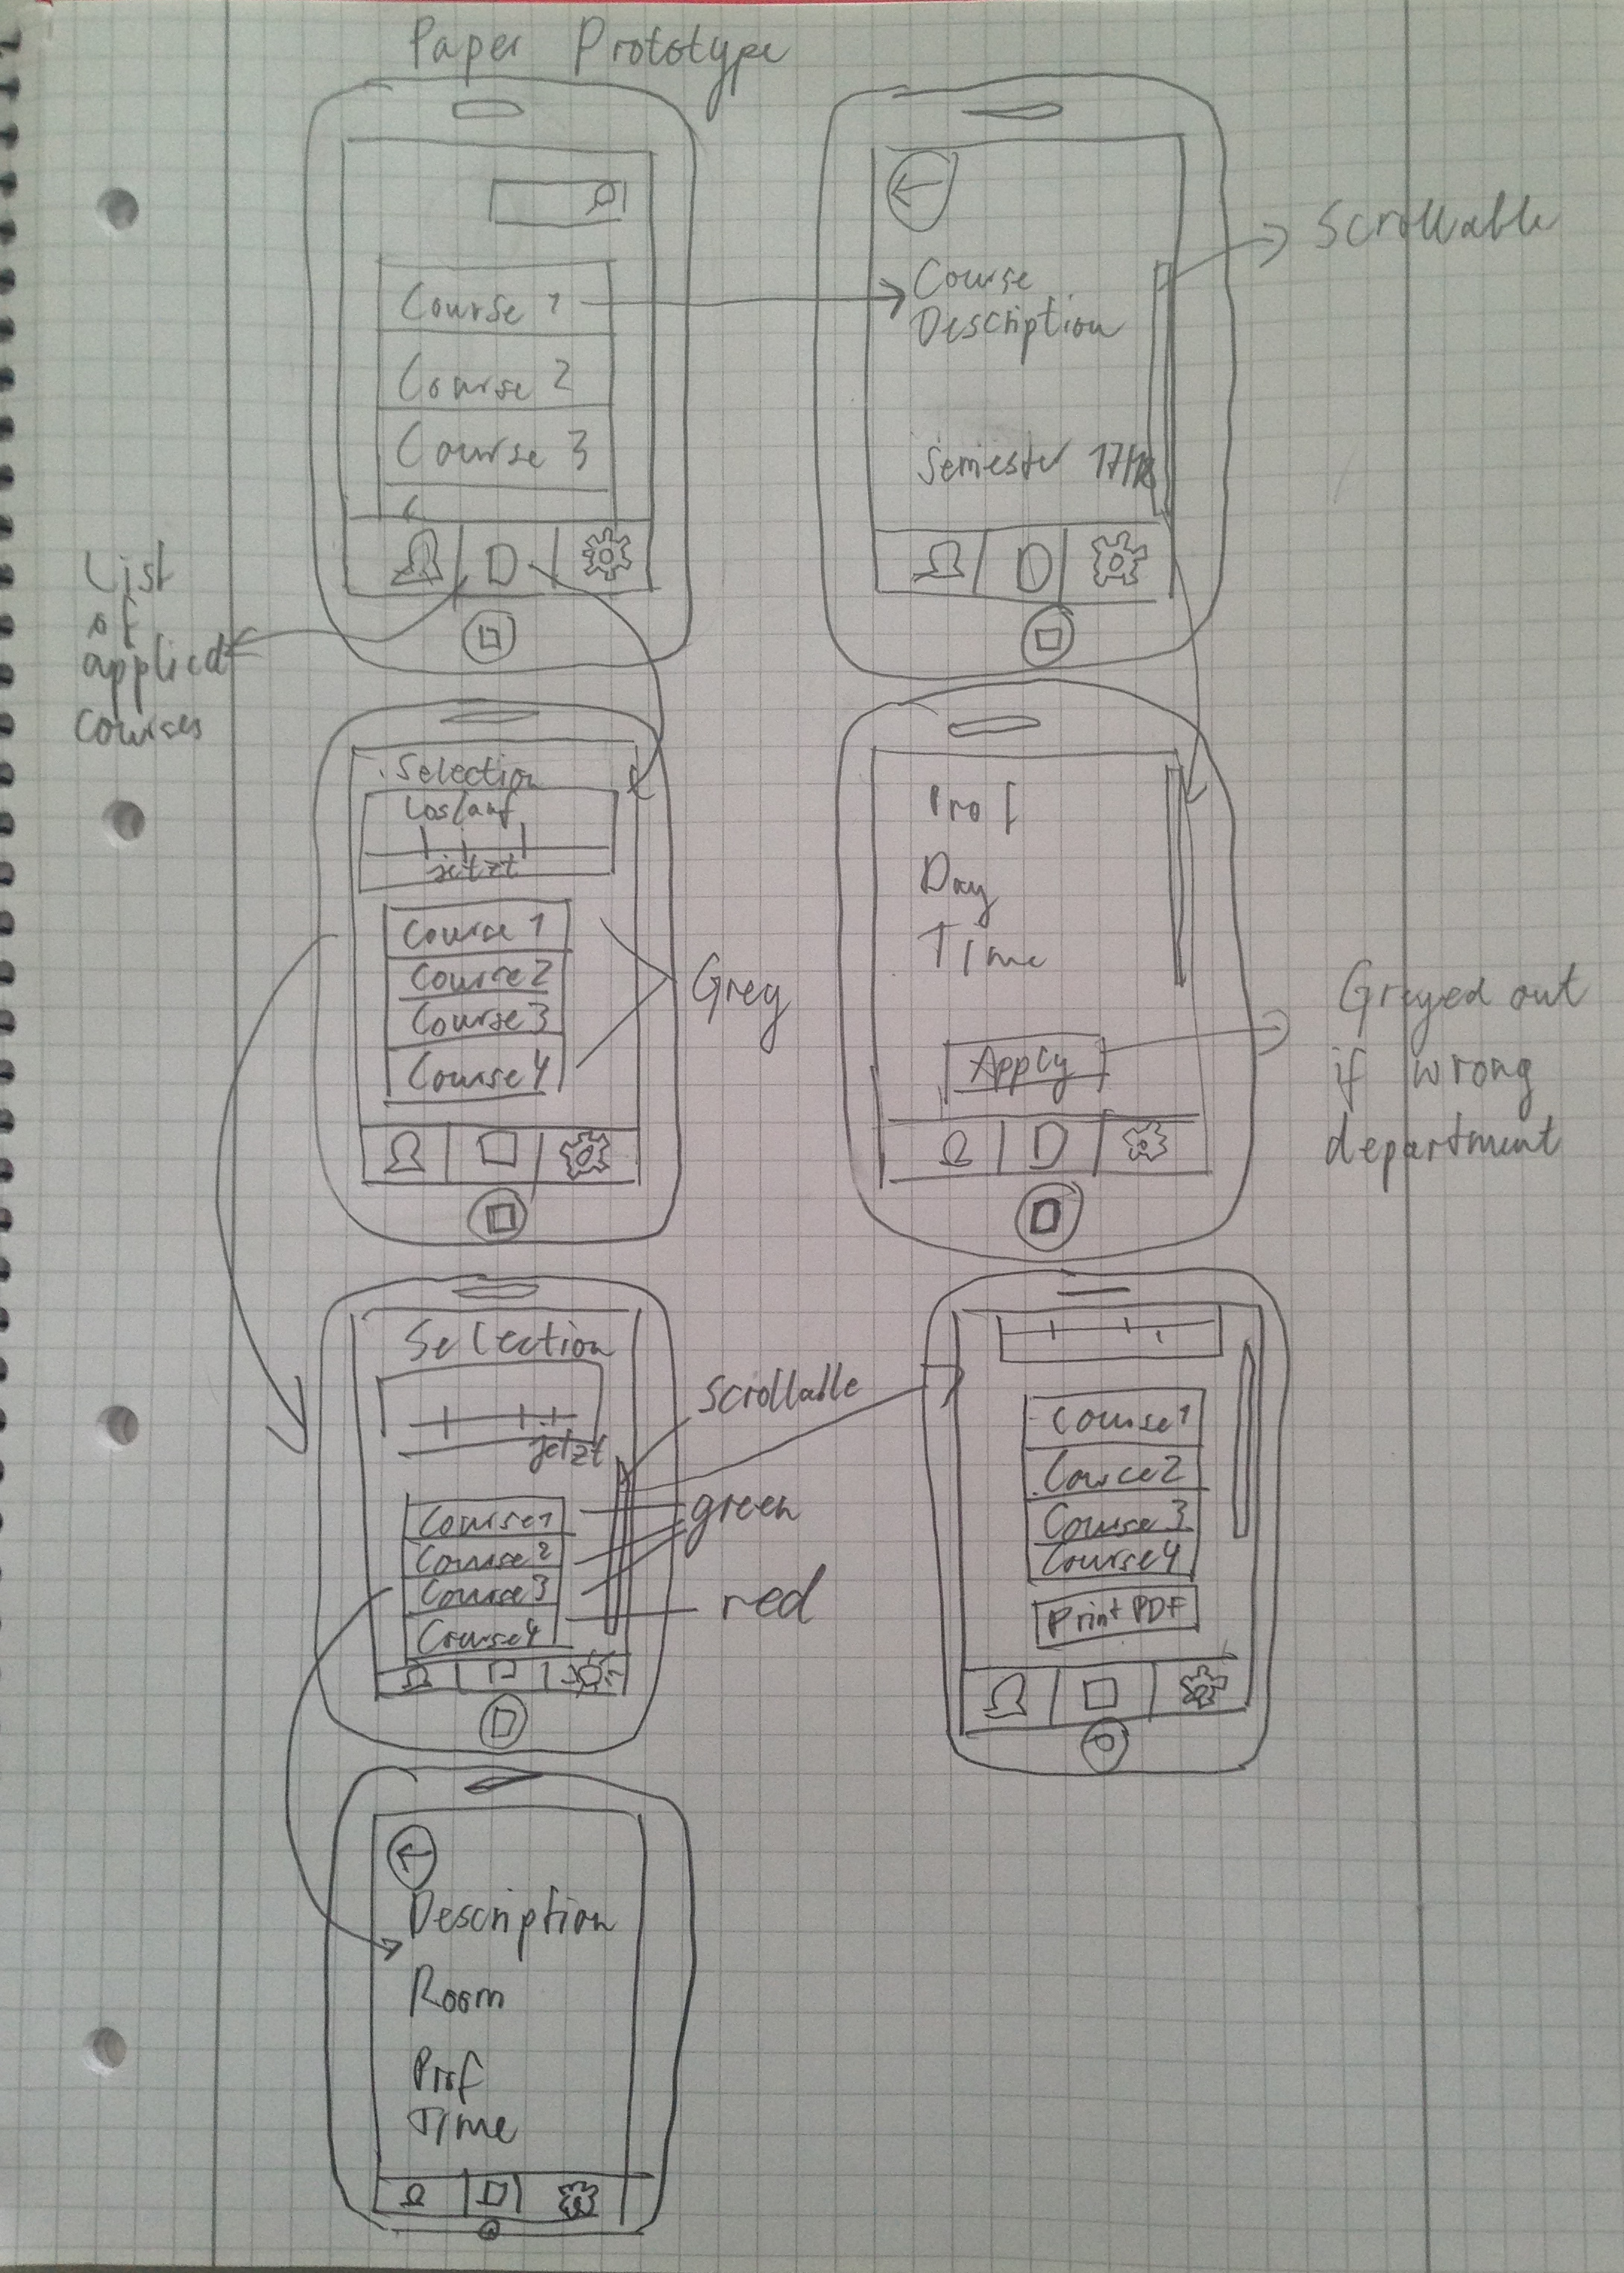 Paper Prototype
Course 1
Course 2
Course 3
Course
Description
Semester 17/18
Scrollable
List
of
applied
courses
Selection
jetzt
Course 1
Course 2
Course 3
Course 4
Grey
Prof
Day
Time
Apply
Greyed out
if wrong
department
Selection
jetzt
Course 1
Course 2
Course 3
Course 4
Scrollable
green
red
Course 1
Cource 2
Course 3
Course 4
Print PDF
Description
Room
Prof
Time